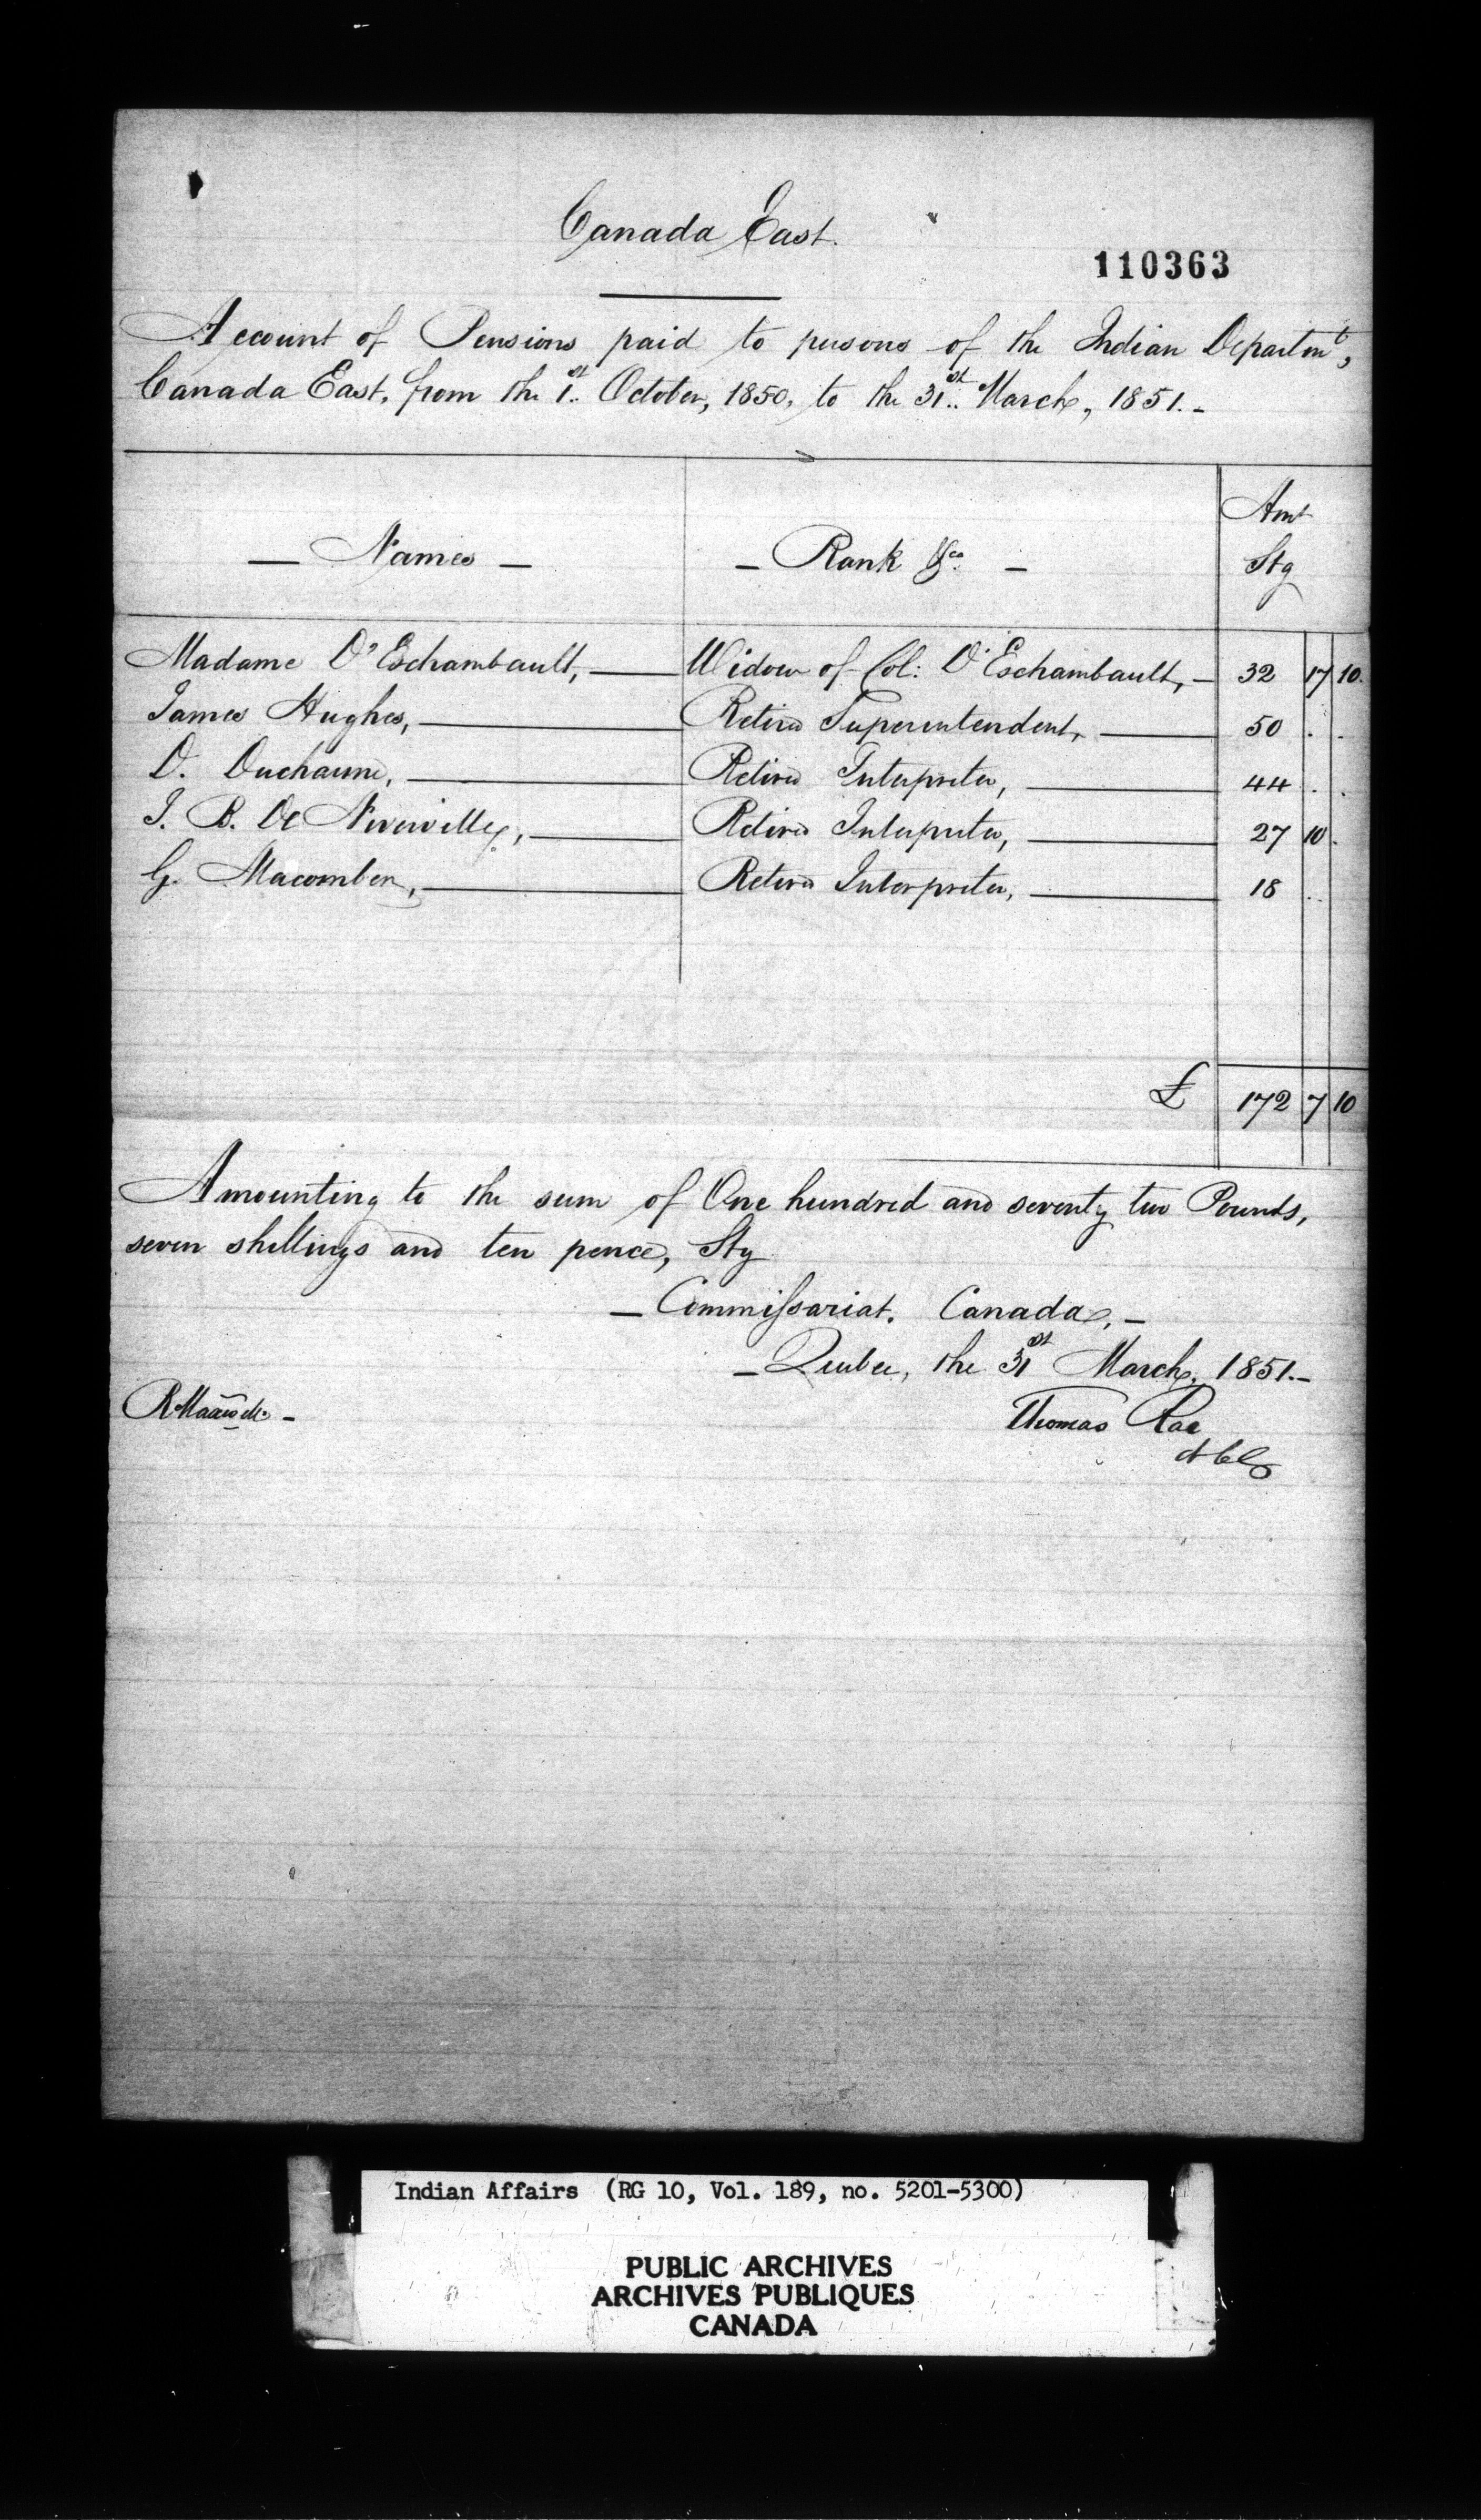 Canada East.
110363
Account of Pensions paid to persons of the Indian Departmt,
Canada East, from the 1st October, 1850, to the 31st March, 1851.-
— Names — — Rank &ca — Amt Stg
Madame D'Eschambault, — Widow of Col: D'Eschambault, — 32 17 10.
James Hughes, — Retired Superintendent, — 50 . .
D. Ducharme, — Retired Interpreter, — 44 . .
J. B. De Niverville, — Retired Interpreter, — 27 10 .
G. Macomber, — Retired Interpreter, — 18 . .
£ 172 7 10
Amounting to the sum of One hundred and seventy two Pounds,
seven shillings and ten pence, Stg
— Commissariat. Canada, —
— Quebec, the 31st March, 1851.—
Thomas Rae
Indian Affairs (RG 10, Vol. 189, no. 5201-5300)
PUBLIC ARCHIVES
ARCHIVES PUBLIQUES
CANADA